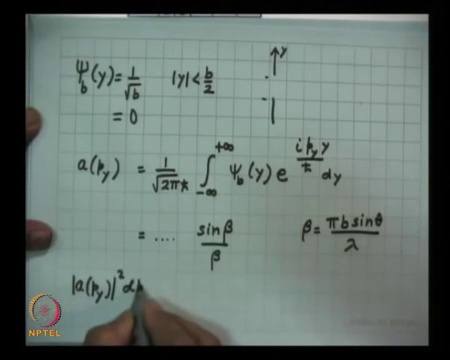 Ψ_b(y) = 1/√b |y| < b/2 ↑y
= 0
a(p_y) = 1/√(2πħ) ∫_{-∞}^{+∞} Ψ_b(y) e^{i p_y y/ħ} dy
= .... sinβ/β β = πb sinθ/λ
|a(p_y)|² dp
NPTEL